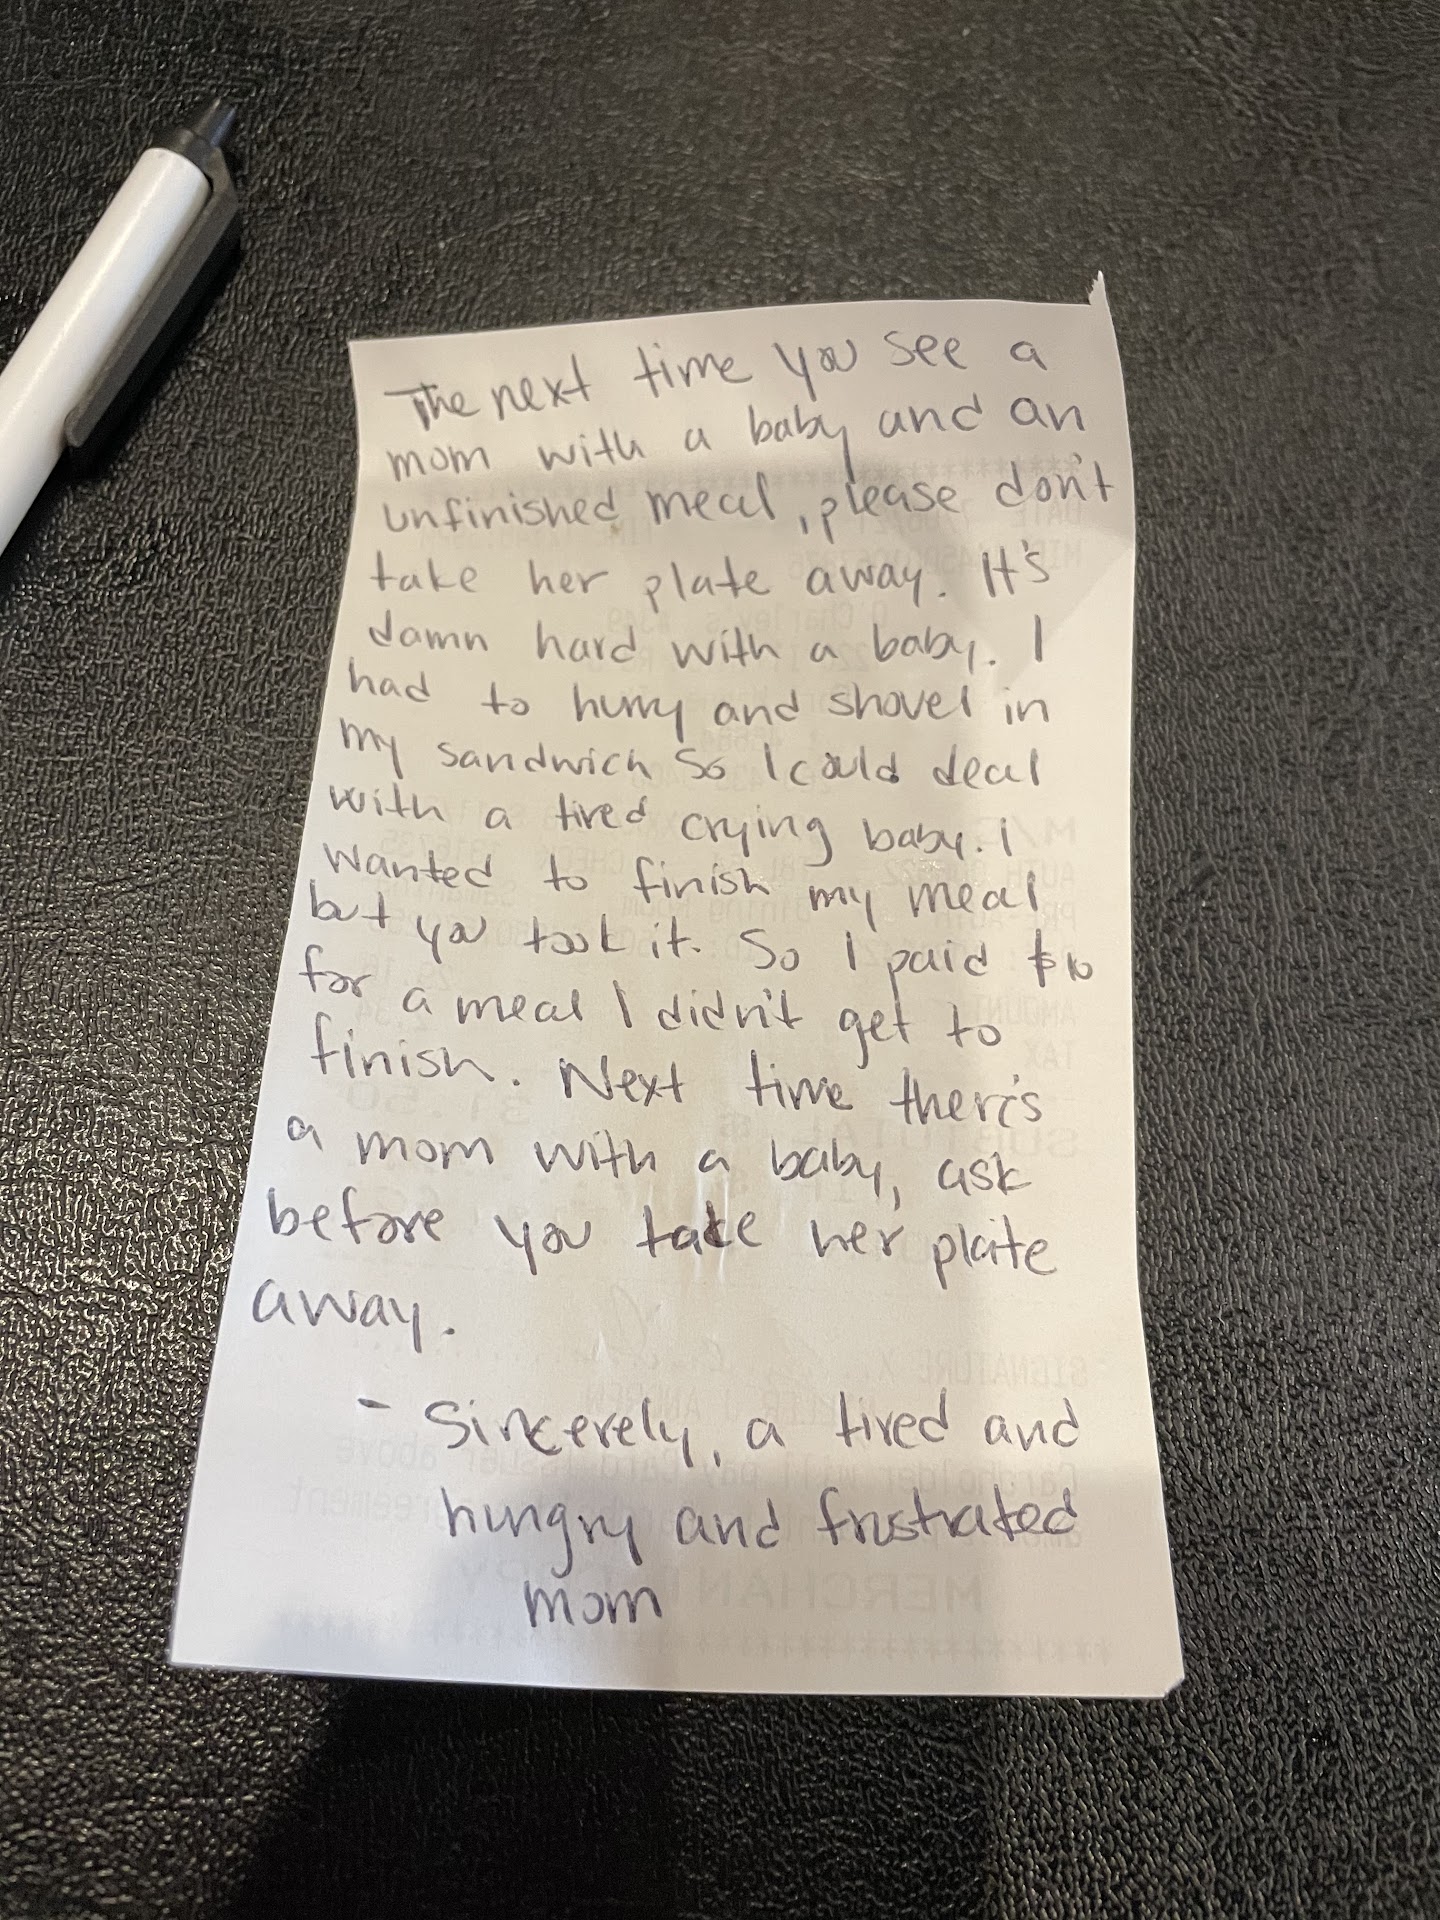 The next time you see a
mom with a baby and an
unfinished meal, please don't
take her plate away. It's
damn hard with a baby. I
had to hurry and shovel in
my sandwich so I could deal
with a tired crying baby. I
wanted to finish my meal
but you took it. So I paid $10
for a meal I didn't get to
finish. Next time there's
a mom with a baby, ask
before you take her plate
away.
- Sincerely, a tired and
hungry and frustrated
mom